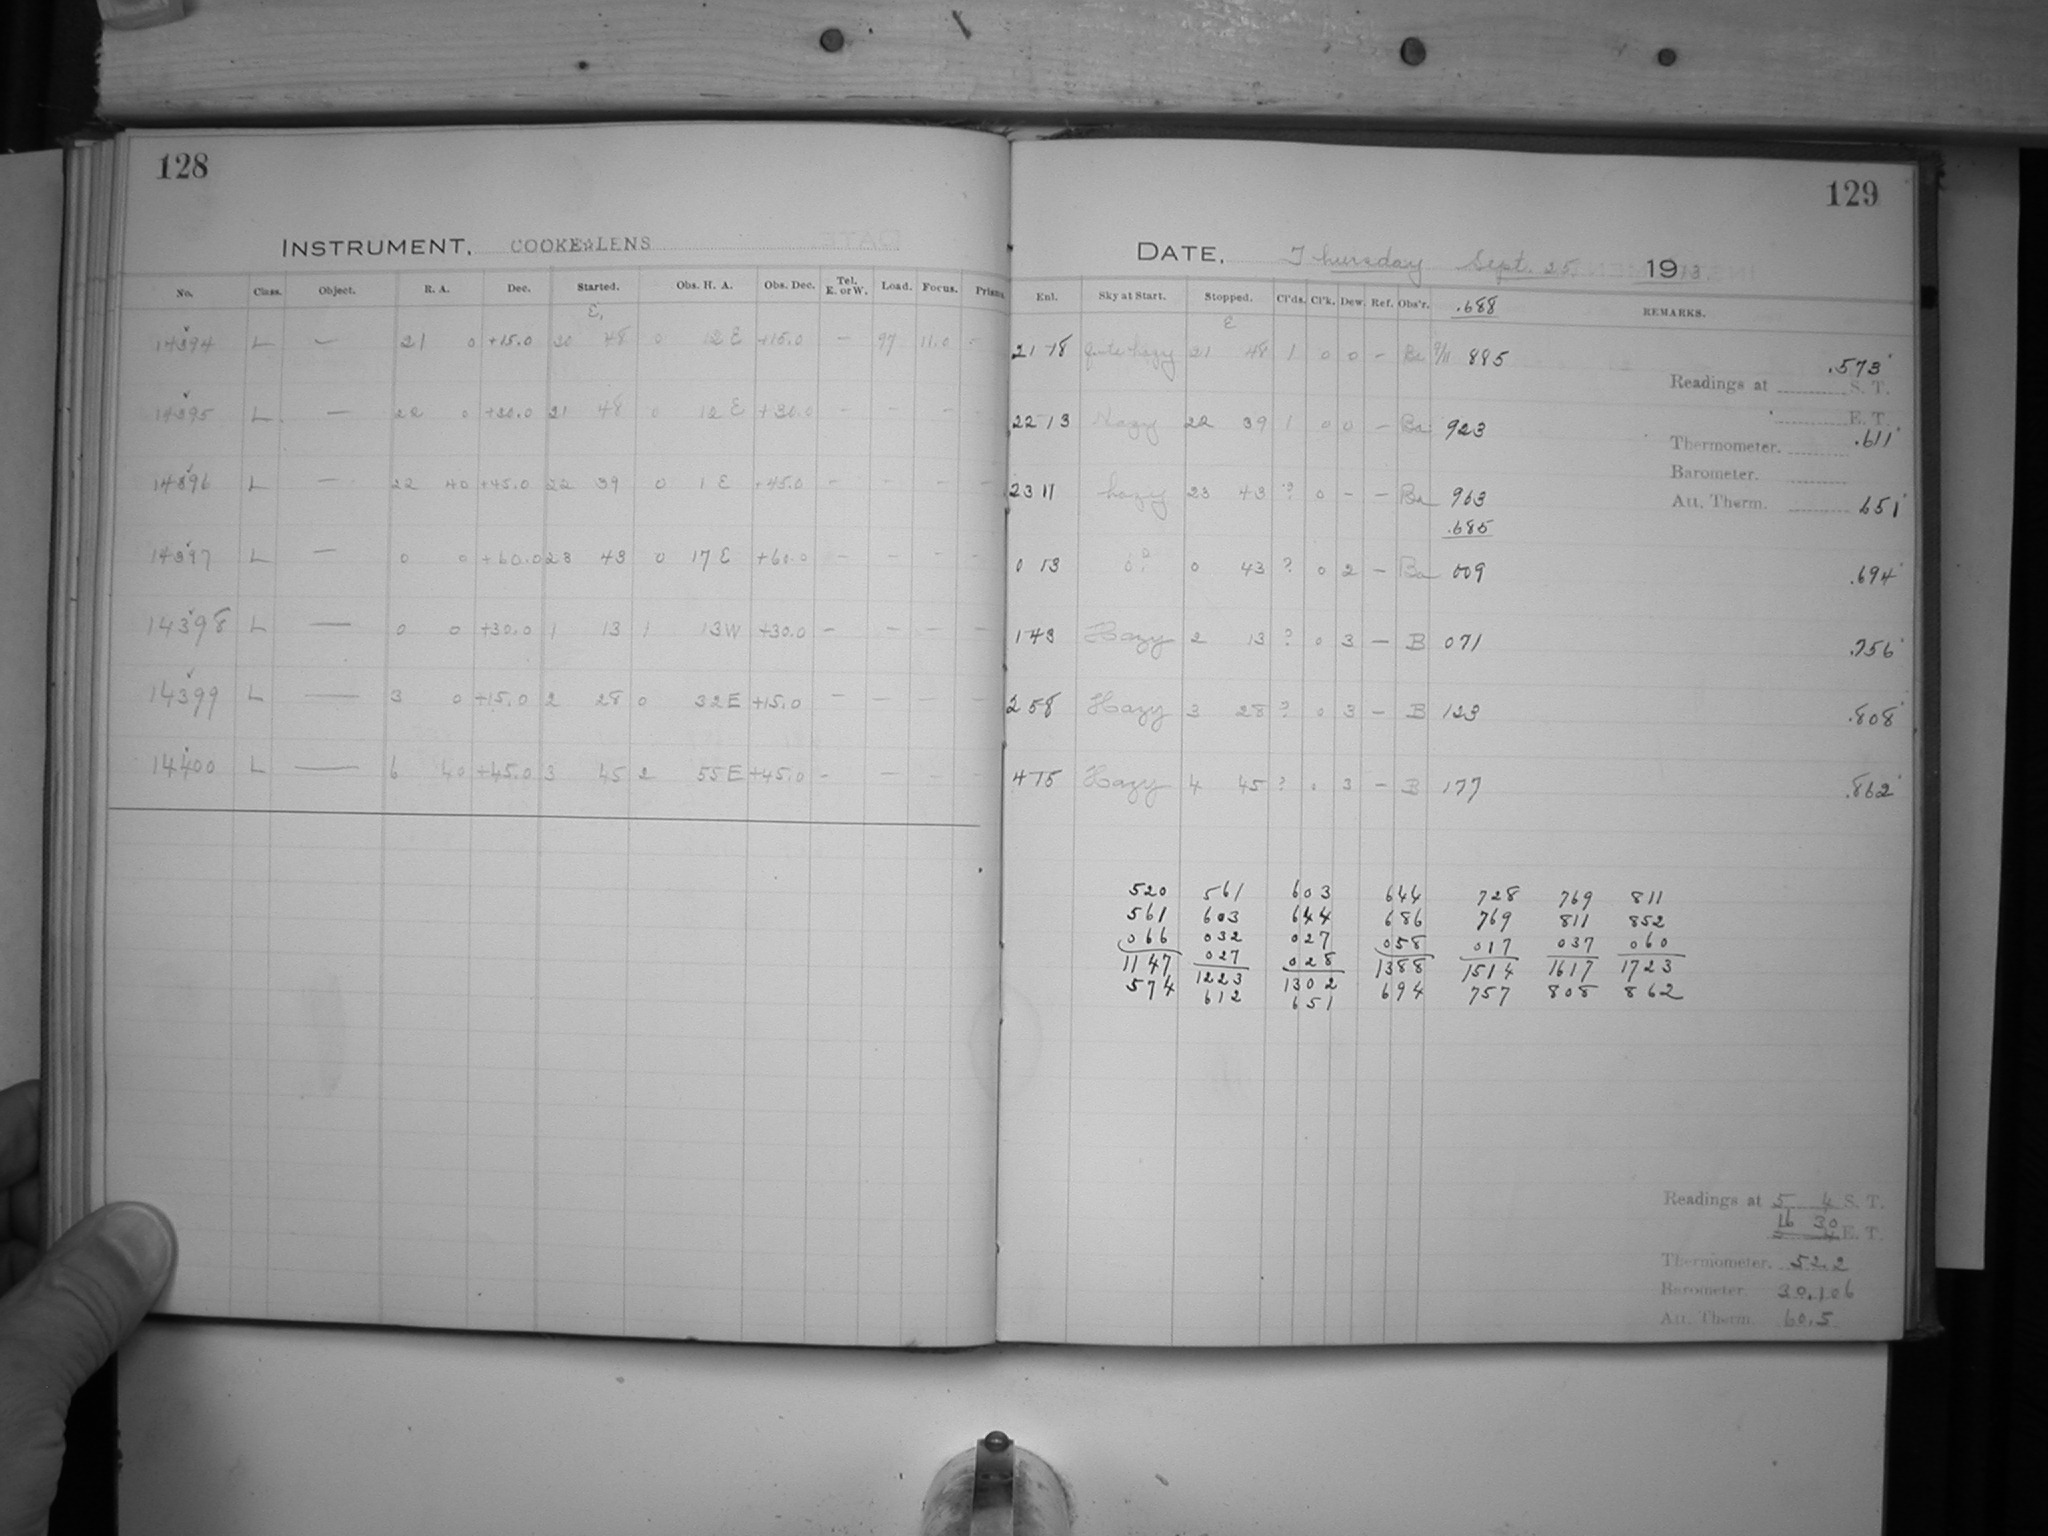 128
INSTRUMENT, COOKE☆LENS
No. Class. Object. R. A. Dec. Started. Obs. H. A. Obs. Dec. Tel. E. or W. Load. Focus. Prisms.
E.
14394 L — 21 0 +15.0 20 48 0 12 E +15.0 — 97 11.0 -
14395 L — 22 0 +30.0 21 48 0 12 E +30.0 - - - -
14396 L — 22 40 +45.0 22 39 0 1 E +45.0 - - - -
14397 L — 0 0 +60.0 23 43 0 17 E +60.0 - - - -
14398 L — 0 0 +30.0 1 13 1 13 W +30.0 - - - -
14399 L — 3 0 +15.0 2 28 0 32 E +15.0 - - - -
14400 L — 6 40 +45.0 3 45 2 55 E +45.0 - - - -
129
DATE, Thursday Sept. 25, 1913.
Enl. Sky at Start. Stopped. Cl'ds. Cl'k. Dew. Ref. Obs'r. .688 REMARKS.
E
21 18 Quite hazy 21 48 1 0 0 - Ba 9/11 885 .573
Readings at S. T.
E. T.
22 13 Hazy 22 39 1 0 0 - Ba 923 .611
Thermometer.
Barometer.
23 11 hazy 23 43 ? 0 - - Ba 963 651
Att. Therm.
.685
0 13 0 43 ? 0 2 - Ba 009 .694
1 43 Hazy 2 13 ? 0 3 - B 071 .756
2 58 Hazy 3 28 ? 0 3 - B 123 .808
4 15 Hazy 4 45 ? . 3 - B 177 .862
520 561 603 644 728 769 811
561 603 644 686 769 811 852
066 032 027 058 017 037 060
1147 027 028 1388 1514 1617 1723
574 1223 1302 694 757 808 862
612 651
Readings at 5 4 S. T.
16 30
E. T.
Thermometer. 52.2
Barometer 30.106
Att. Therm. 60.5